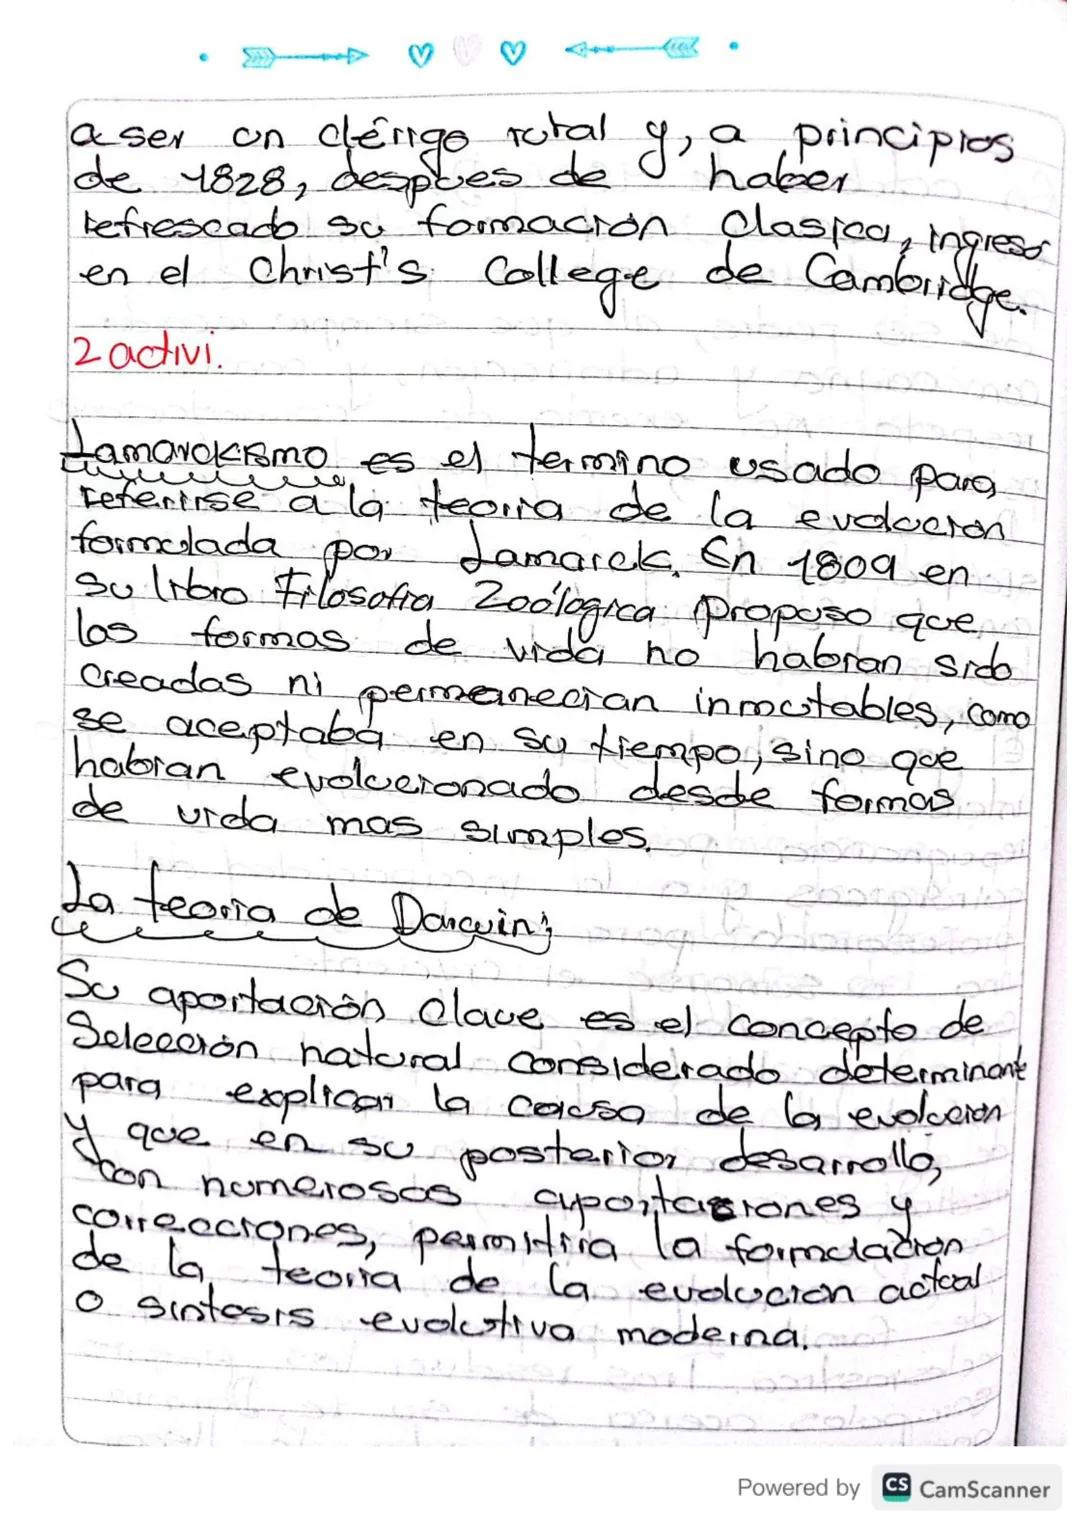 a ser un clérigo rural y, a principios
de 1828, despues de haber
refrescado su formación clasica, ingreso
en el Christ's College de Cambridge.
2 activi.
Lamarckismo es el termino usado para
referirse a la teoria de la evolucion
formulada por Lamarck. En 1809 en
su libro Filosofia Zoólogica propuso que
las formas de vida no habian sido
creadas ni permanecian inmutables, como
se aceptaba en su tiempo, sino que
habian evolucionado desde formas
de vida mas simples.
La teoria de Darwin;
Su aportación clave es el concepto de
Selección natural considerado determinante
para explicar la causa de la evolución
y que en su posterior desarrollo,
con numerosas aportaciones y
correcciones, permitiria la formulación
de la teoria de la evolucion actual
o sintesis evolutiva moderna.
Powered by CS CamScanner